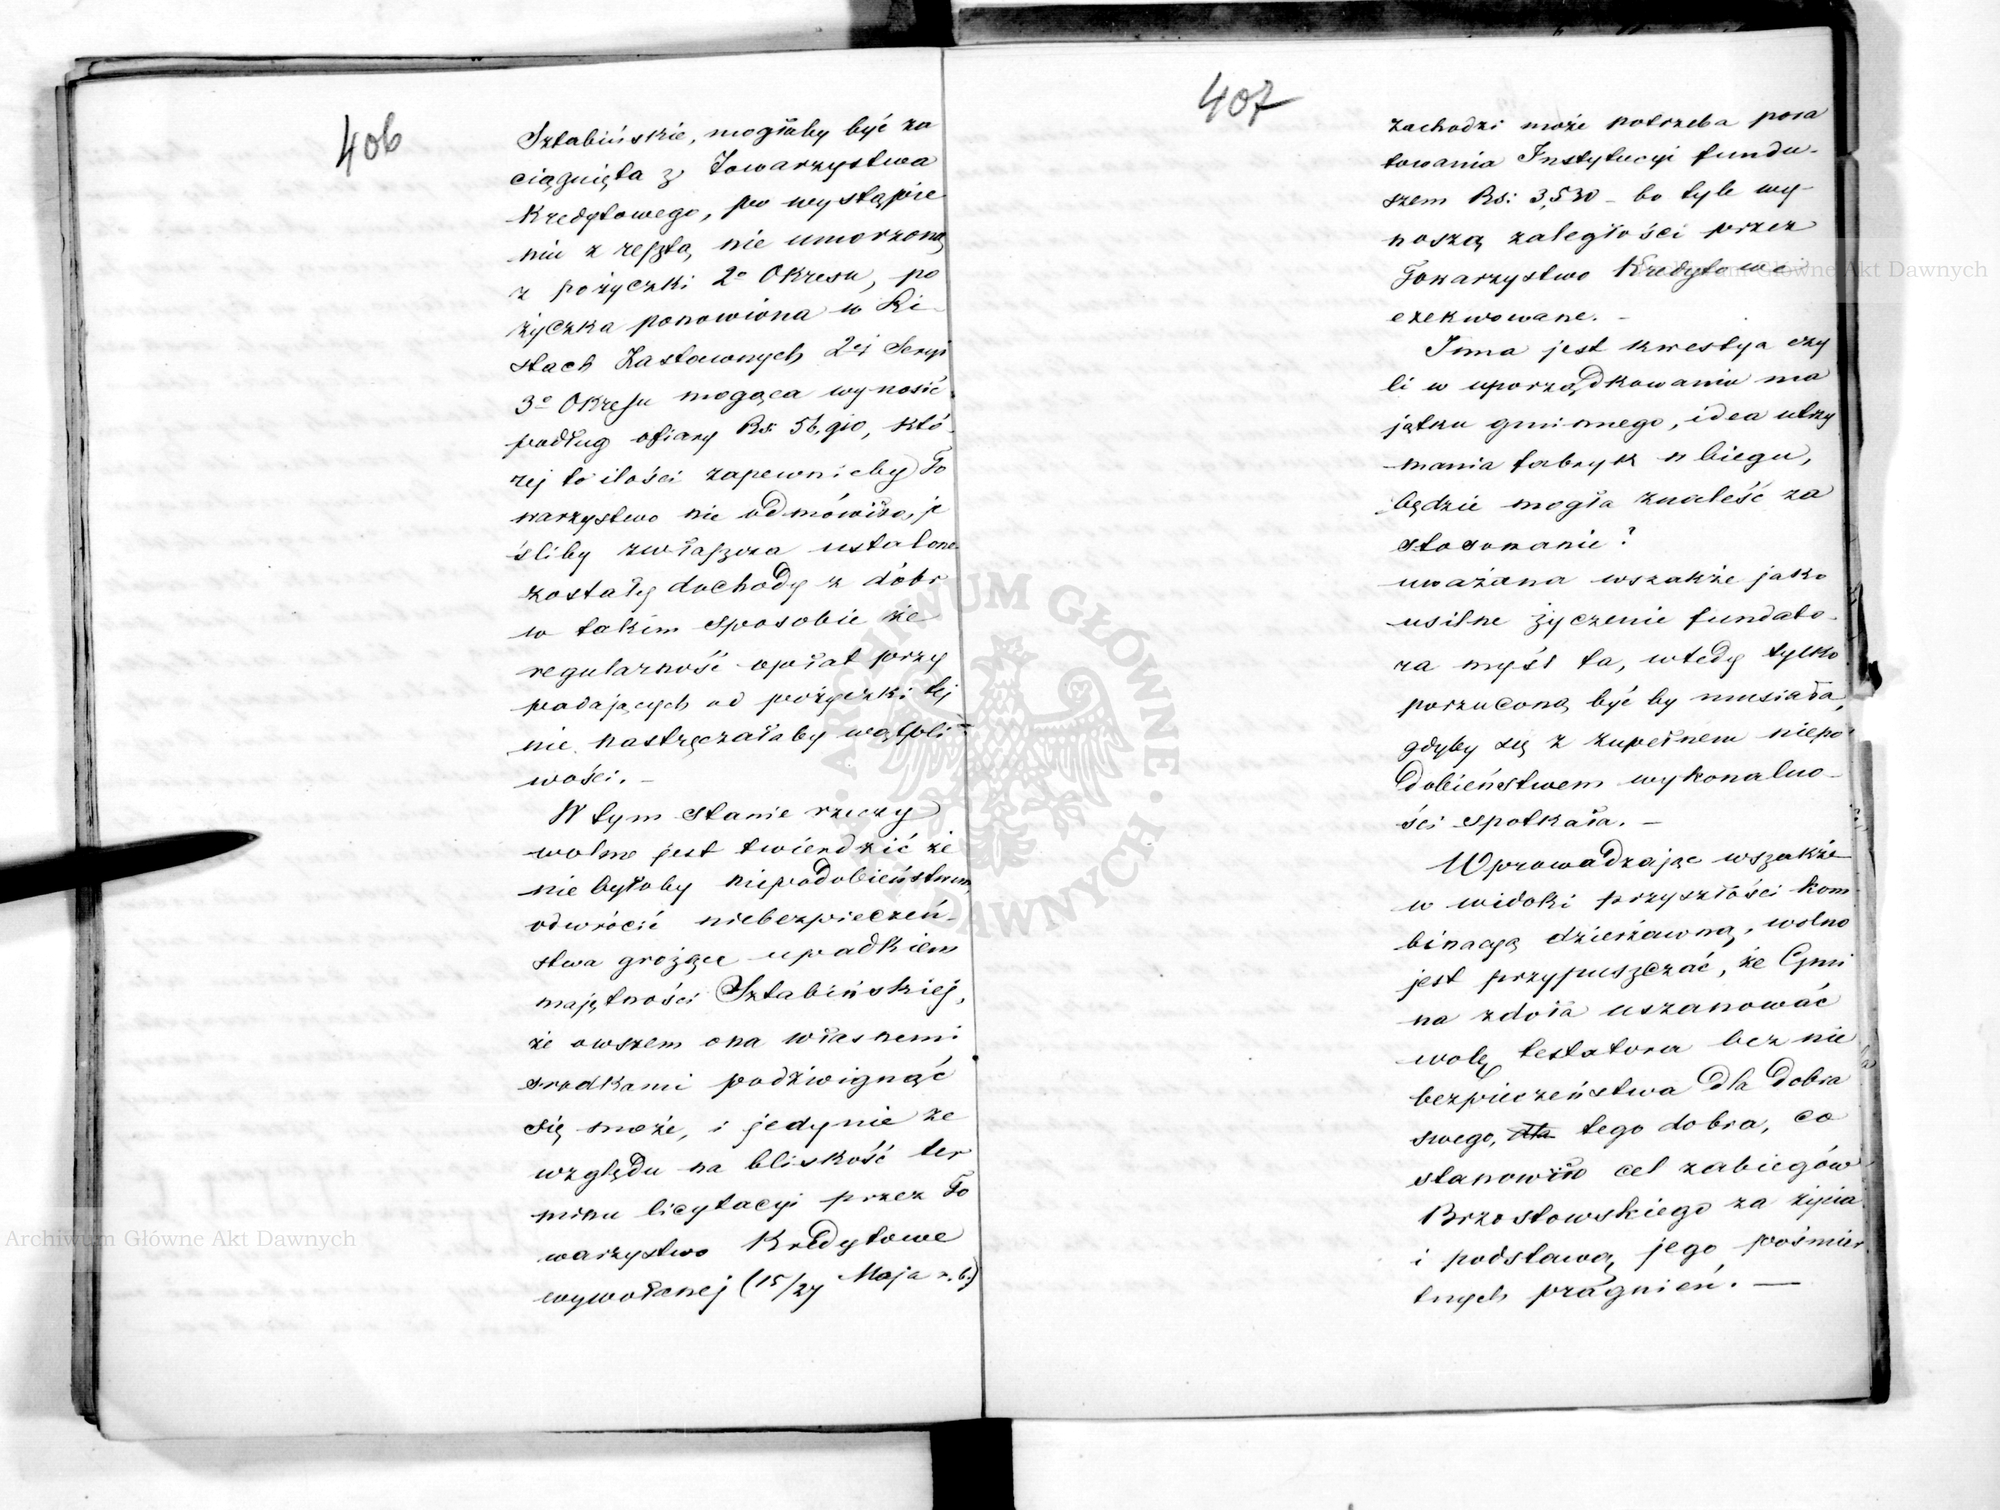 406
Sztabińskie, mogłaby być za
ciągnięta z Towarzystwa
Kredytowego, po wystąpie
niu z resztą nie umorzoną
z pożyczki 2º Okresu, po
życzka ponowiona w Li
stach Zastawnych 2ej Seryi
3º Okresu mogąca wynosić
podług ofiary Rs: 56,910, któ
rej to ilości zapewnieby To
warzystwo nie odmówiło, je
śliby zwłaszcza ustalone
zostały dochody z dóbr
w takim sposobie że
regularność opłat przy
padających od pożyczki tej
nie nastręczałaby wątpli
wości. –
W tym stanie rzeczy
wolno jest twierdzić że
nie byłoby niepodobieństwem
odwrócić niebezpieczeń-
stwa grożące upadkiem
majętności Sztabińskiej,
że owszem ona własnemi
środkami podźwignąć
się może, i jedynie ze
względu na bliskość ter
minu licytacyi przez To
warzystwo Kredytowe
wywołanej (15/27 Maja r. b.)
407
zachodzi może potrzeba pora
towania Instytucyi fundu-
szem Rs: 3,530 – bo tyle wy-
noszą zaległości przez
Towarzystwo Kredytowe
exekwowane. –
Inna jest kwestya czy
li w uporządkowaniu ma
jątku gminnego, idea utrzy
mania fabryk w biegu,
będzie mogła znaleść za
stosowanie?
uważana wszakże jako
usilne życzenie fundato-
ra myśl ta, wtedy tylko
porzuconą być by musiała,
gdyby się z zupełnem niepo
dobieństwem wykonalno-
ści spotkała. –
Wprowadzając wszakże
w widoki przyszłości kom
binacyą dzierżawną, wolno
jest przypuszczać, że Gmi
na zdoła uszanować
wolę testatora bez nie
bezpieczeństwa dla dobra
swego, dla tego dobra, co
stanowiło cel zabiegów
Brzostowskiego za życia
i podstawą jego pośmier
tnych pragnień. –
Archiwum Główne Akt Dawnych
Archiwum Główne Akt Dawnych
ARCHIWUM GŁÓWNE AKT DAWNYCH